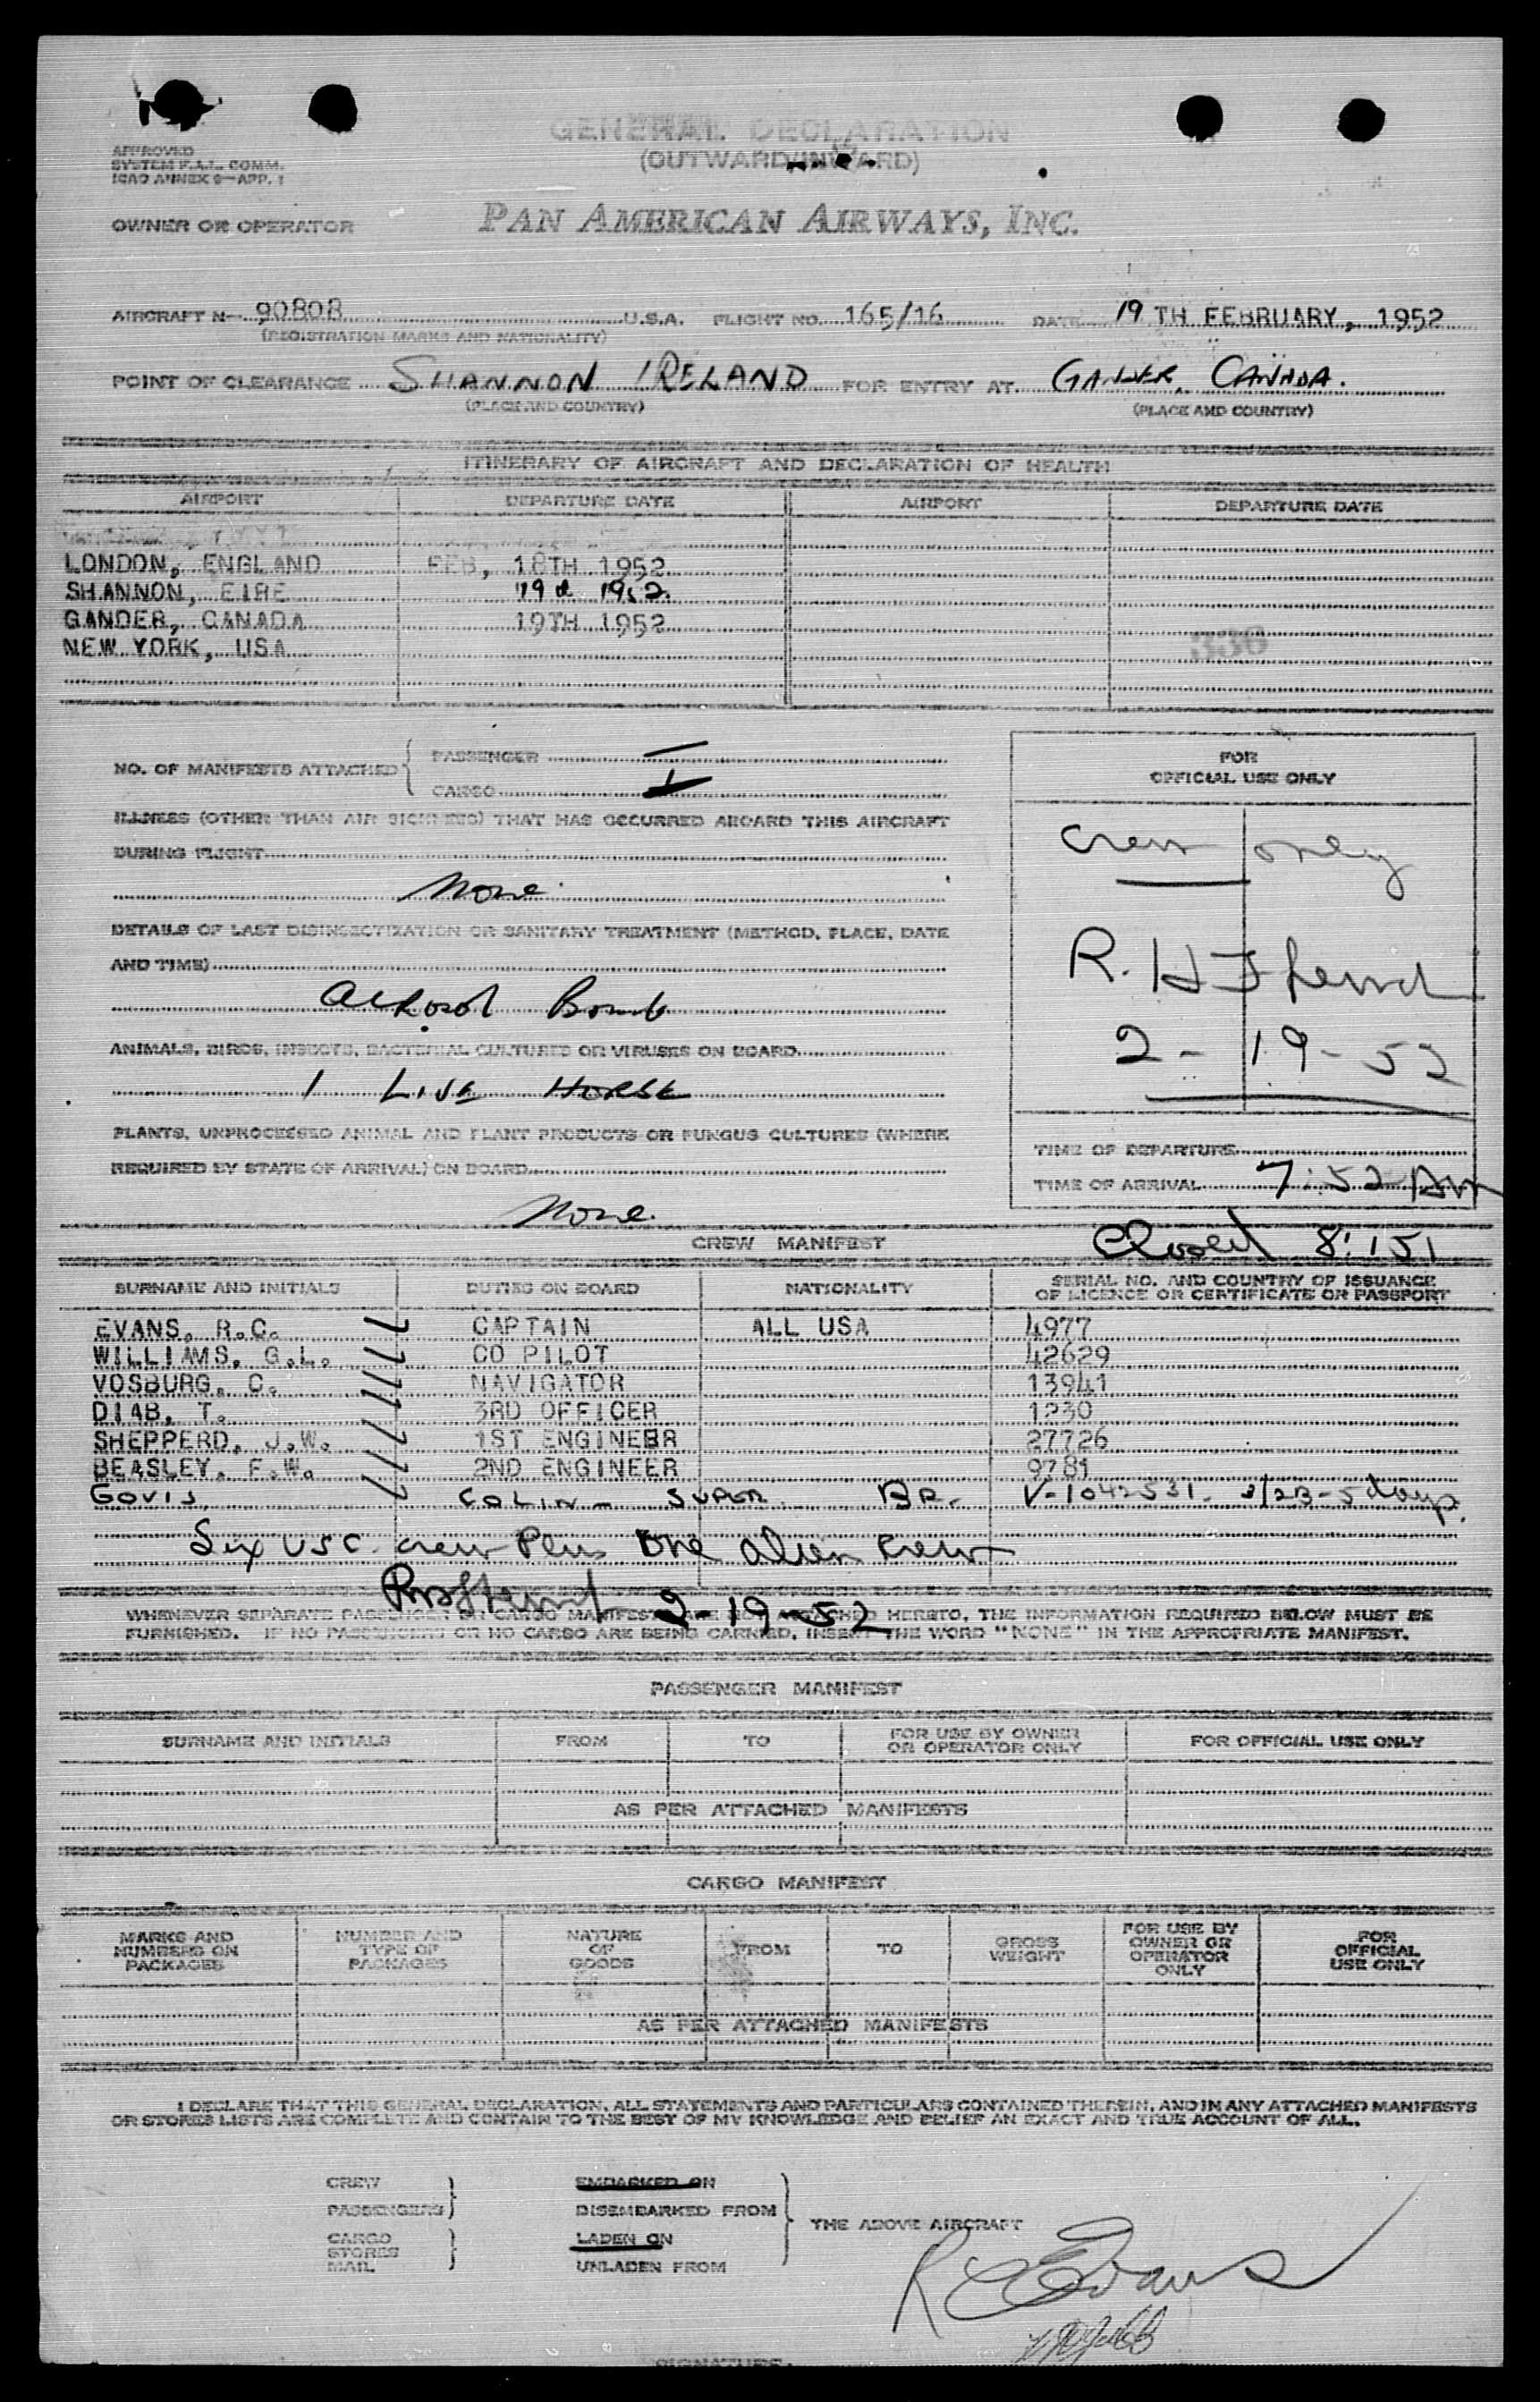 GENERAL DECLARATION
(OUTWARD/INWARD)
APPROVED
SYSTEM F.A.L. COMM.
ICAO ANNEX 9—APP. 1
OWNER OR OPERATOR PAN AMERICAN AIRWAYS, INC.
AIRCRAFT N— 90808 U.S.A. FLIGHT NO. 165/16 DATE 19 TH FEBRUARY, 1952
(REGISTRATION MARKS AND NATIONALITY)
POINT OF CLEARANCE SHANNON IRELAND FOR ENTRY AT GANDER, CANADA.
(PLACE AND COUNTRY) (PLACE AND COUNTRY)
ITINERARY OF AIRCRAFT AND DECLARATION OF HEALTH
AIRPORT DEPARTURE DATE AIRPORT DEPARTURE DATE
LONDON, ENGLAND FEB, 18TH 1952
SHANNON, EIRE 19 1952
GANDER, CANADA 19TH 1952
NEW YORK, USA
336
NO. OF MANIFESTS ATTACHED { PASSENGER —
CARGO 1
ILLNESS (OTHER THAN AIR SICKNESS) THAT HAS OCCURRED ABOARD THIS AIRCRAFT
DURING FLIGHT
None
DETAILS OF LAST DISINSECTIZATION OR SANITARY TREATMENT (METHOD, PLACE, DATE
AND TIME)
Aerosol Bomb
ANIMALS, BIRDS, INSECTS, BACTERIAL CULTURES OR VIRUSES ON BOARD
1 LIVE HORSE
PLANTS, UNPROCESSED ANIMAL AND PLANT PRODUCTS OR FUNGUS CULTURES (WHERE
REQUIRED BY STATE OF ARRIVAL) ON BOARD
None.
FOR
OFFICIAL USE ONLY
Crew only
R. H.
2-19-52
TIME OF DEPARTURE
TIME OF ARRIVAL 7:52 AM
Closed
CREW MANIFEST
SURNAME AND INITIALS DUTIES ON BOARD NATIONALITY SERIAL NO. AND COUNTRY OF ISSUANCE
OF LICENCE OR CERTIFICATE OR PASSPORT
EVANS, R.C. CAPTAIN ALL USA 4977
WILLIAMS, G.L. CO PILOT 42629
VOSBURG, C. NAVIGATOR 13941
DIAB, T. 3RD OFFICER 1230
SHEPPERD, J.W. 1ST ENGINEER 27726
BEASLEY, F.W. 2ND ENGINEER 9781
GOVIS, COLIN - SUPER. BR. V-1042531
Six USC crew Plus One alien crew
2-19-52
WHENEVER SEPARATE PASSENGER OR CARGO MANIFESTS ARE NOT ATTACHED HERETO, THE INFORMATION REQUIRED BELOW MUST BE
FURNISHED. IF NO PASSENGERS OR NO CARGO ARE BEING CARRIED, INSERT THE WORD "NONE" IN THE APPROPRIATE MANIFEST.
PASSENGER MANIFEST
SURNAME AND INITIALS FROM TO FOR USE BY OWNER
OR OPERATOR ONLY FOR OFFICIAL USE ONLY
AS PER ATTACHED MANIFESTS
CARGO MANIFEST
MARKS AND
NUMBERS ON
PACKAGES
NUMBER AND
TYPE OF
PACKAGES
NATURE
OF
GOODS
FROM
TO
GROSS
WEIGHT
FOR USE BY
OWNER OR
OPERATOR
ONLY
FOR
OFFICIAL
USE ONLY
AS PER ATTACHED MANIFESTS
I DECLARE THAT THIS GENERAL DECLARATION, ALL STATEMENTS AND PARTICULARS CONTAINED THEREIN, AND IN ANY ATTACHED MANIFESTS
OR STORES LISTS ARE COMPLETE AND CONTAIN TO THE BEST OF MY KNOWLEDGE AND BELIEF AN EXACT AND TRUE ACCOUNT OF ALL.
CREW EMBARKED ON
PASSENGERS DISEMBARKED FROM
THE ABOVE AIRCRAFT
CARGO LADEN ON
STORES
MAIL UNLADEN FROM
R C Evans
SIGNATURE.